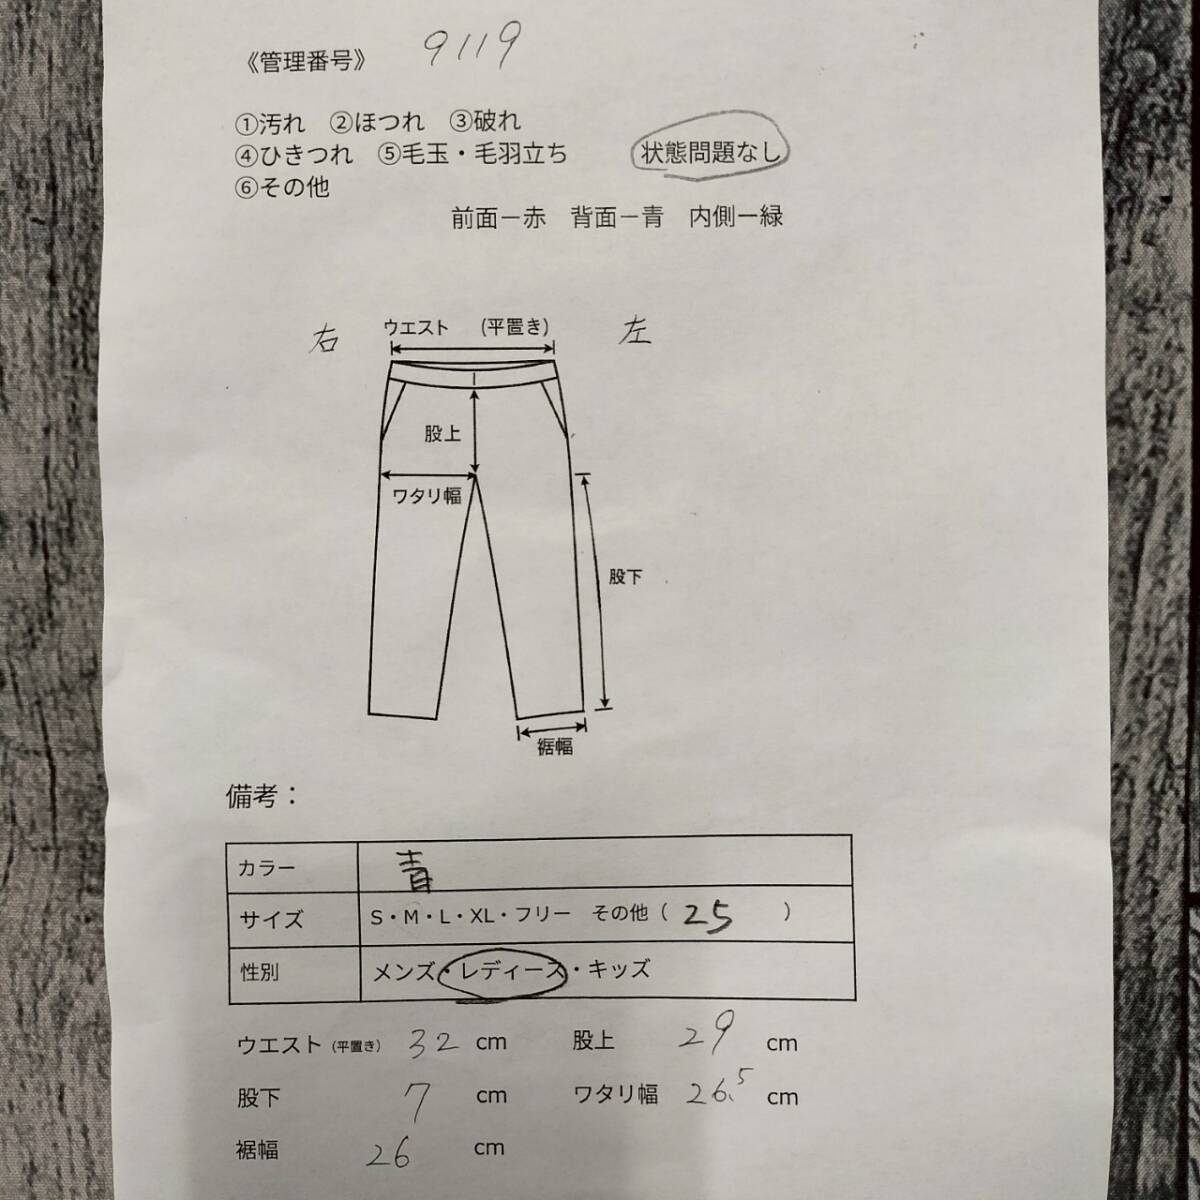 《管理番号》 9119
①汚れ ②ほつれ ③破れ
④ひきつれ ⑤毛玉・毛羽立ち 状態問題なし
⑥その他
前面－赤 背面－青 内側－緑
右 ウエスト (平置き) 左
股上
ワタリ幅
股下
裾幅
備考：
カラー 青
サイズ S・M・L・XL・フリー その他（ 25 ）
性別 メンズ・レディース・キッズ
ウエスト（平置き） 32 cm 股上 29 cm
股下 7 cm ワタリ幅 26.5 cm
裾幅 26 cm